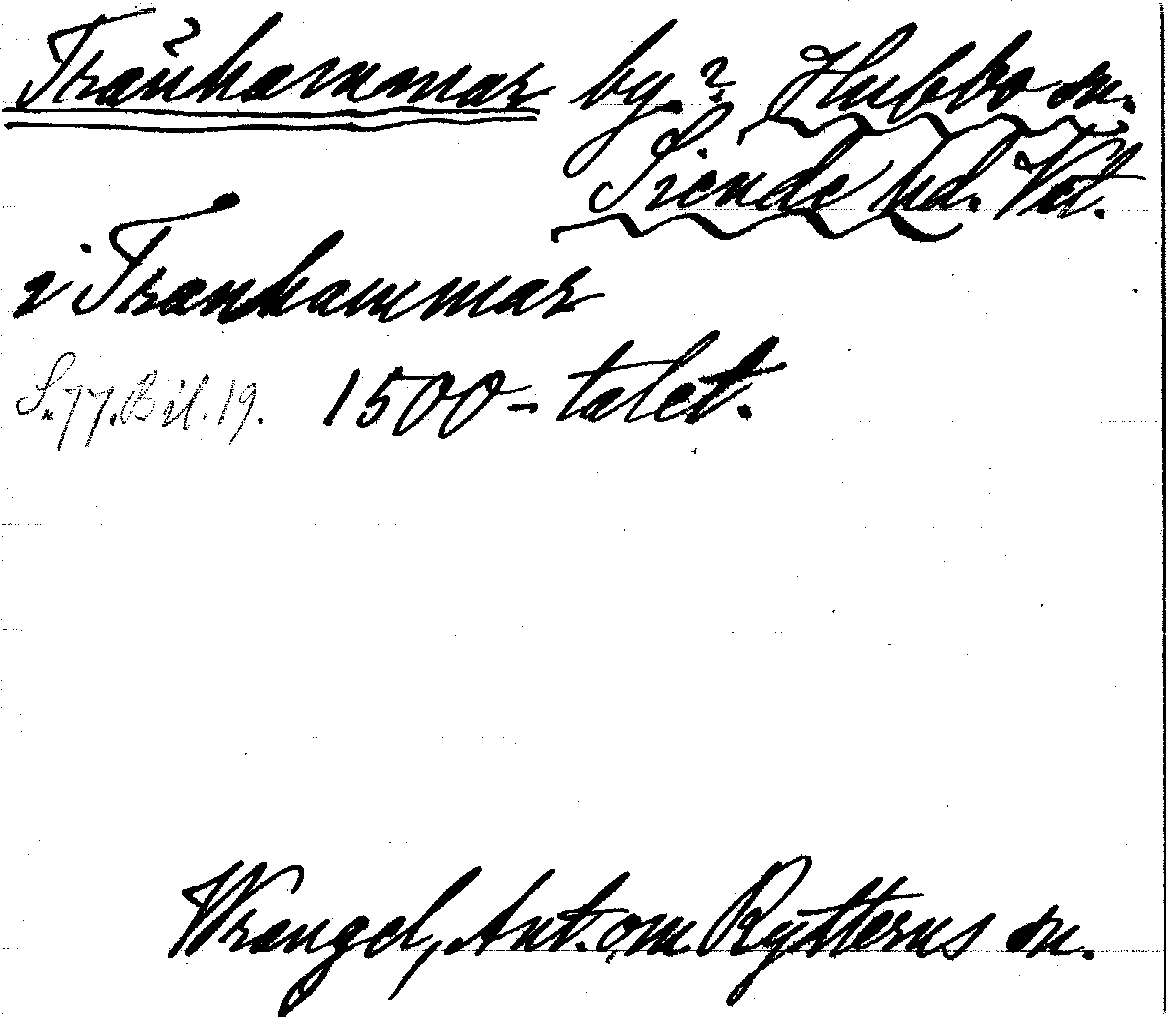 Tranhammar by? Hubbo sn.
Siende hd. Vstl.
i Tranhammar
S. 77. Bil. 19. 1500-talet.
Wrangel, Ant. om Rytterns sn.